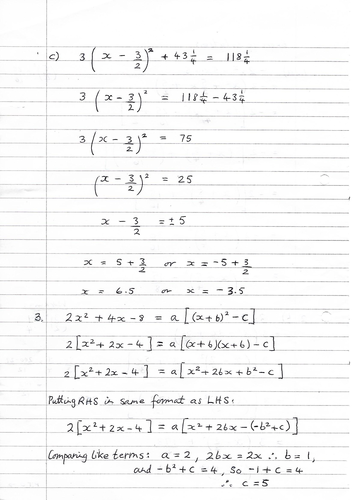 c) 3(x - 3/2)² + 43 1/4 = 118 1/4
3(x - 3/2)² = 118 1/4 - 43 1/4
3(x - 3/2)² = 75
(x - 3/2)² = 25
x - 3/2 = ± 5
x = 5 + 3/2 or x = -5 + 3/2
x = 6.5 or x = -3.5
3. 2x² + 4x - 8 = a[(x+b)² - c]
2[x² + 2x - 4] = a[(x+b)(x+b) - c]
2[x² + 2x - 4] = a[x² + 2bx + b² - c]
Putting RHS in same format as LHS:
2[x² + 2x - 4] = a[x² + 2bx - (-b² + c)]
Comparing like terms: a = 2, 2bx = 2x ∴ b = 1,
and -b² + c = 4, so -1 + c = 4
∴ c = 5